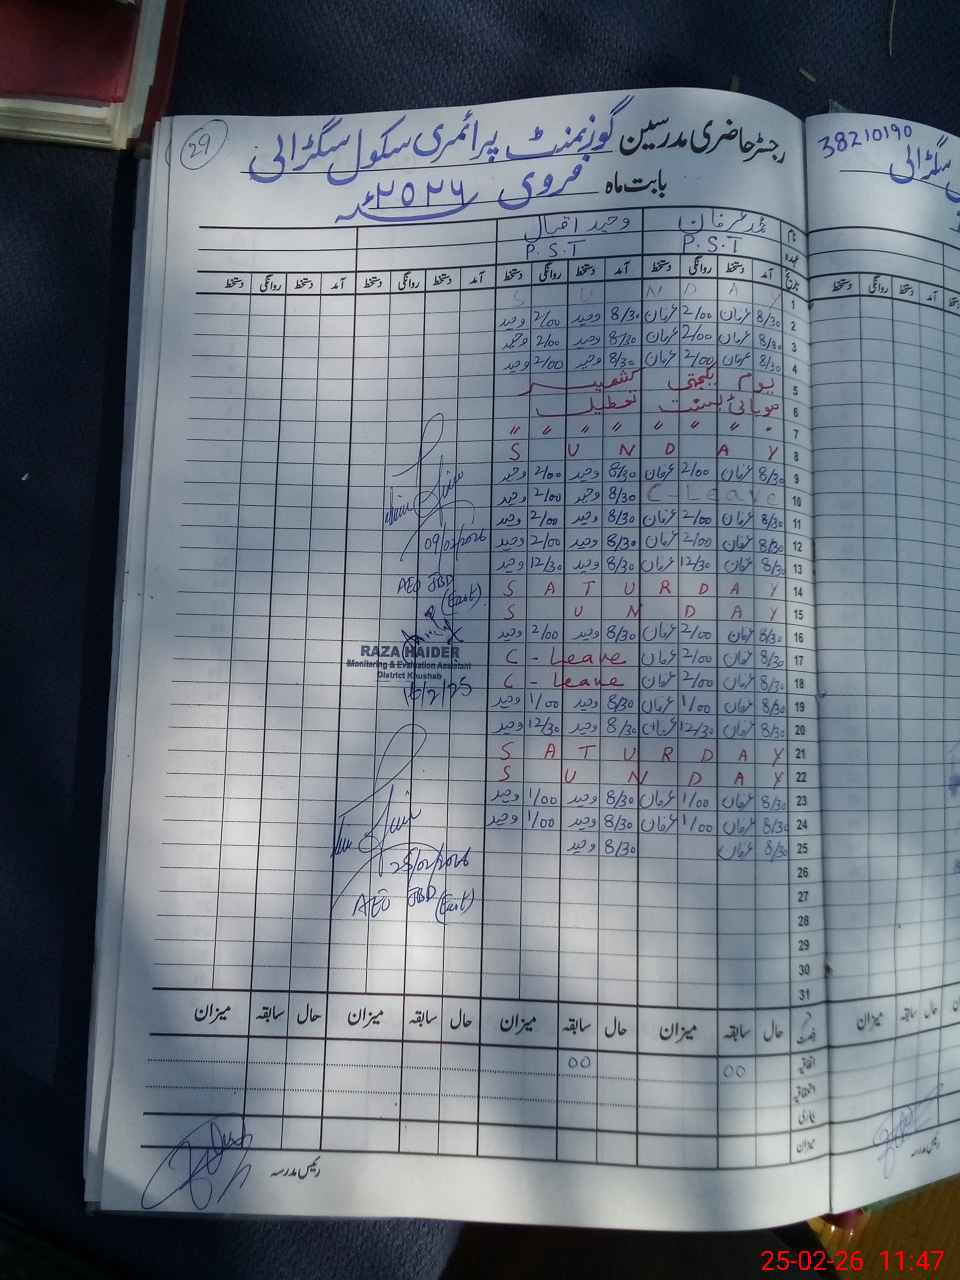 29
رجسٹر حاضری مدرسین گورنمنٹ پرائمری سکول سگڑالی
بابت ماہ فروری ۲۰۲۶ء
38210190
نام محمد عرفان وحید اقبال
عہدہ P.S.T P.S.T
تاریخ آمد دستخط روانگی دستخط آمد دستخط روانگی دستخط آمد دستخط روانگی دستخط آمد دستخط روانگی دستخط
1 SUNDAY
2 8/30 عرفان 2/00 عرفان 8/30 وحید 2/00 وحید
3 8/30 عرفان 2/00 عرفان 8/30 وحید 2/00 وحید
4 8/30 عرفان 2/00 عرفان 8/30 وحید 2/00 وحید
5 یوم یکجہتی کشمیر
6 تعطیل
7 " " " " " " "
8 SUNDAY
9 8/30 عرفان 2/00 عرفان 8/30 وحید 2/00 وحید
10 C-Leave 8/30 وحید 2/00 وحید
11 8/30 عرفان 2/00 عرفان 8/30 وحید 2/00 وحید
12 8/30 عرفان 2/00 عرفان 8/30 وحید 2/00 وحید
13 8/30 عرفان 12/30 عرفان 8/30 وحید 12/30 وحید
14 SATURDAY
15 SUNDAY
16 8/30 عرفان 2/00 عرفان 8/30 وحید 2/00 وحید
17 8/30 عرفان 2/00 عرفان C-Leave
18 8/30 عرفان 2/00 عرفان C-Leave
19 8/30 عرفان 1/00 عرفان 8/30 وحید 1/00 وحید
20 8/30 عرفان 12/30 عرفان 8/30 وحید 12/30 وحید
21 SATURDAY
22 SUNDAY
23 8/30 عرفان 1/00 عرفان 8/30 وحید 1/00 وحید
24 8/30 عرفان 1/00 عرفان 8/30 وحید 1/00 وحید
25 8/30 عرفان 8/30 وحید
26
27
28
29
30
31
09/02/2026
AEO JBD
(East)
RAZA HAIDER
Monitoring & Evaluation Assistant
District Khushab
16/2/25
25/02/2026
AEO JBD
(East)
حال سابقہ میزان حال سابقہ میزان حال سابقہ میزان حال سابقہ میزان
اتفاقیہ 00 00
بیماری
میزان
رئیس مدرسہ
رئیس مدرسہ
25-02-26 11:47